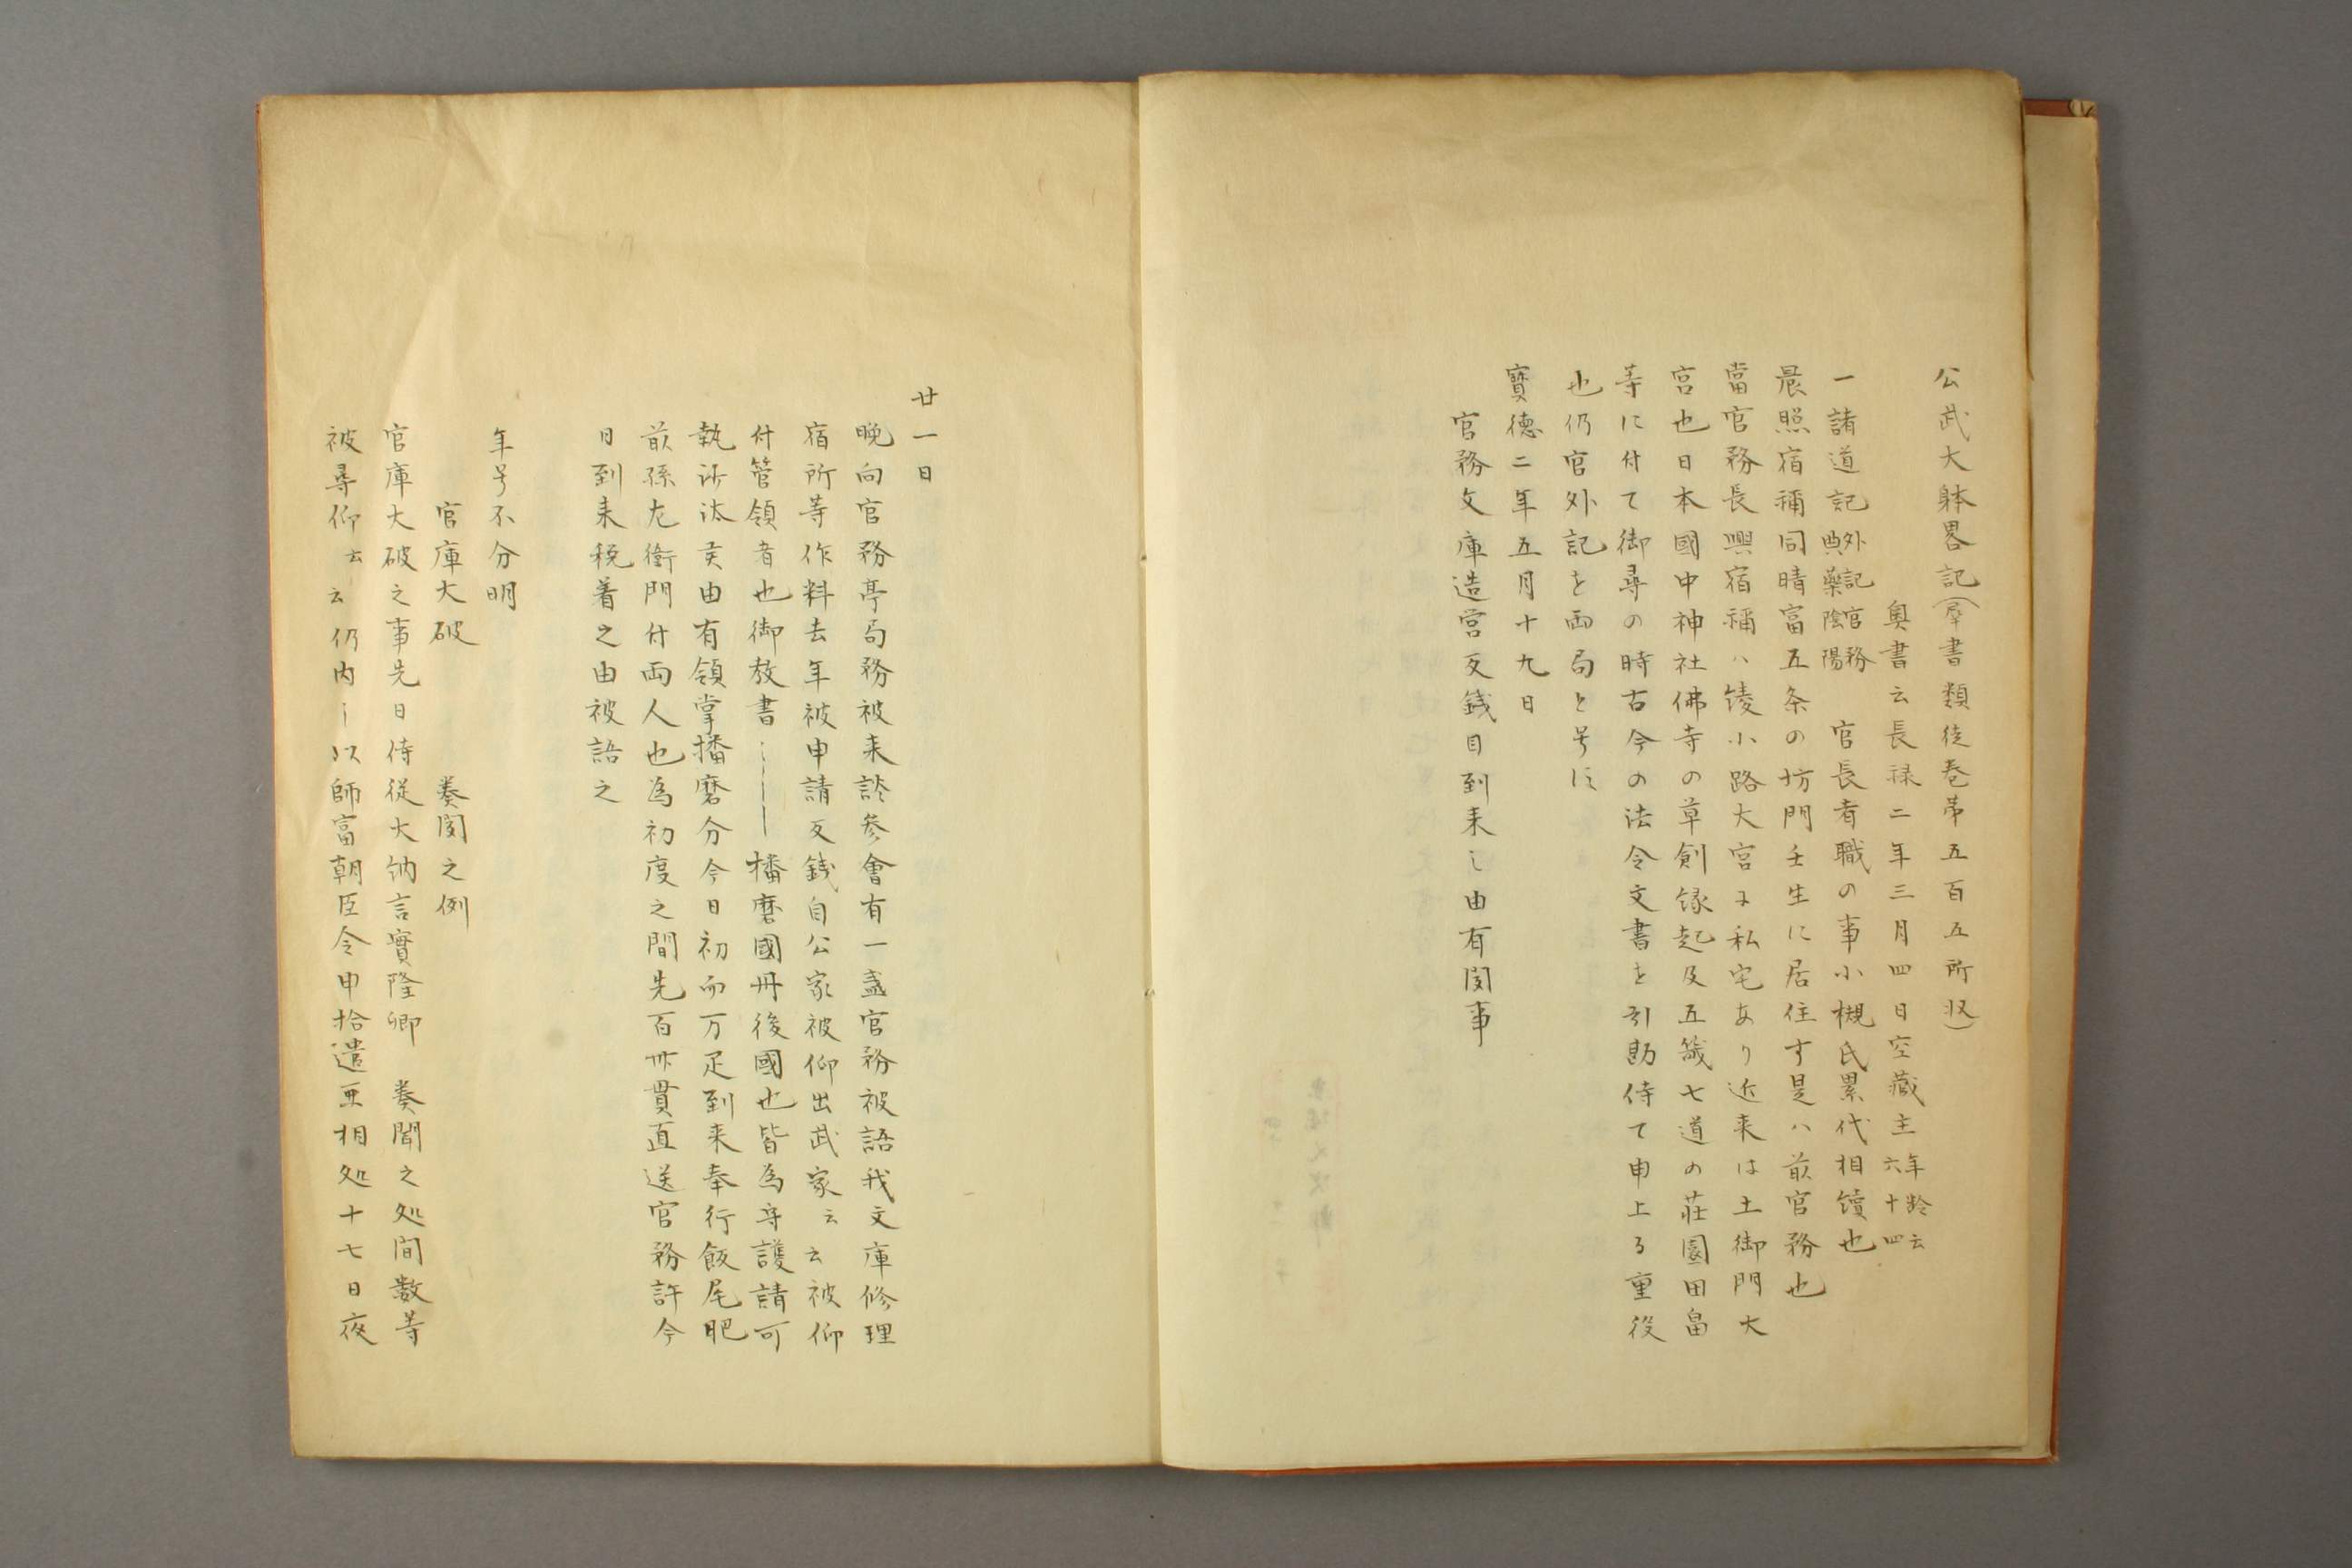 公武大躰畧記(羣書類従巻第五百五所収)
奥書云長禄二年三月四日空蔵主年齢云六十四
一諸道記外記官務典藥陰陽 官長者職の事小槻氏累代相續也
晨照宿祢同晴富五条の坊門壬生に居住す是ハ前官務也
當官務長興宿祢ハ綾小路大宮子私宅あり近来は土御門大
宮也日本國中神社佛寺の草創縁起及五畿七道の荘園田畠
等に付て御尋の時古今の法令文書を引勘侍て申上る重役
也仍官外記を両局と号に
寳徳二年五月十九日
官務文庫造営反銭目到来之由有閑事
廿一日
晩向官務亭局務被来談参會有一盞官務被語我文庫修理
宿所等作料去年被申請反銭自公家被仰出武家云云被仰
付管領者也御教書――― 播磨國丹後國也皆為守護請可
執沙汰矣由有領掌播磨分今日初而万疋到来奉行飯尾肥
前孫左衛門付両人也為初度之間先百卅貫直送官務許今
日到来税着之由被語之
年号不分明
官庫大破 奏聞之例
官庫大破之事先日侍従大納言實隆卿 奏聞之処間数等
被尋仰云云仍内〻以師富朝臣令申拾遺亜相処十七日夜